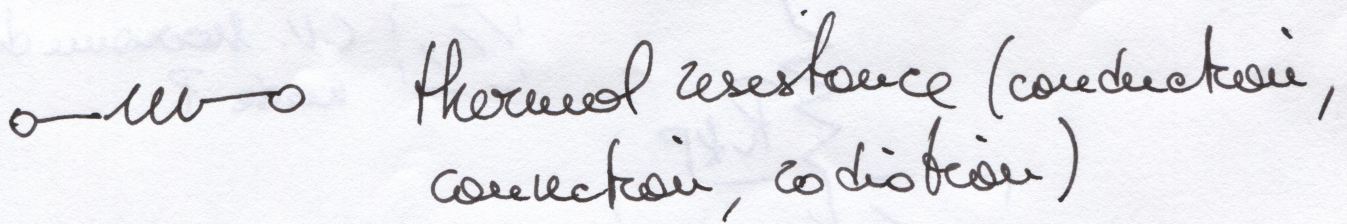 thermal resistance (conduction,
convection, radiation)